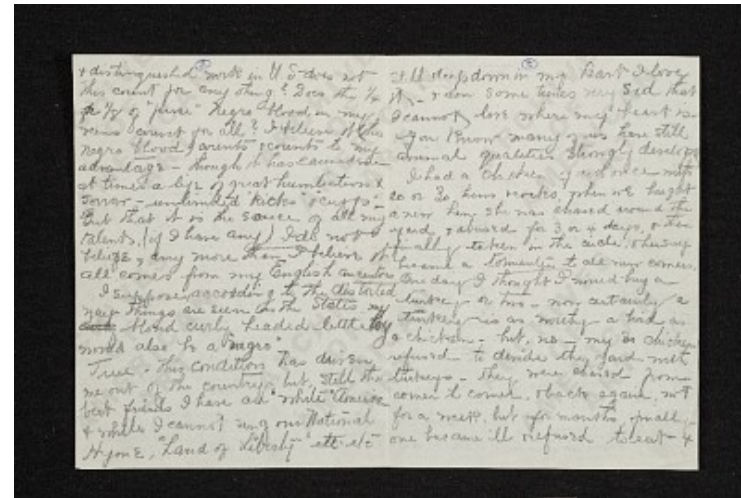 & distinguished work in U S does not
this count for any thing? Does the 1/4
or 1/8 of "pure" Negro blood in my
veins count for all? I believe it, the
Negro blood counts & counts to my
advantage - though it has caused me
at times a life of great humiliation &
sorrow - unlimited "kicks" & "cuffs" -
But that it is the source of all my
talents, (if I have any) I do not
believe, any more than I believe it
all comes from my English ancestors
I suppose according to the distorted
way things are seen in the States my
blond curly headed little boy
would also be a "Negro".
True - this condition has driven
me out of the country, but still the
best friends I have are "white" Americans
& while I cannot sing our National
Hymn, "Land of Liberty" etc etc
still deep down in my heart I love
it & am some times very sad that
I cannot live where my heart is.
You know many of us have still
animal qualities strongly developed
I had a chicken yard once with
20 or 30 hens & cocks, when we bought
a new hen, she was chased around the
yard, & abused for 3 or 4 days, & then
finally taken in the circle, & then
became a tormentor to all new comers.
One day I thought I would buy a
turkey or two - now certainly a
turkey is as worthy a bird as
a chicken - but, no - my 30 chickens
refused to divide the yard with
turkeys - they were chased from
corner to corner, & back again, not
for a week, but for months, finally
one became ill & refused to eat - &